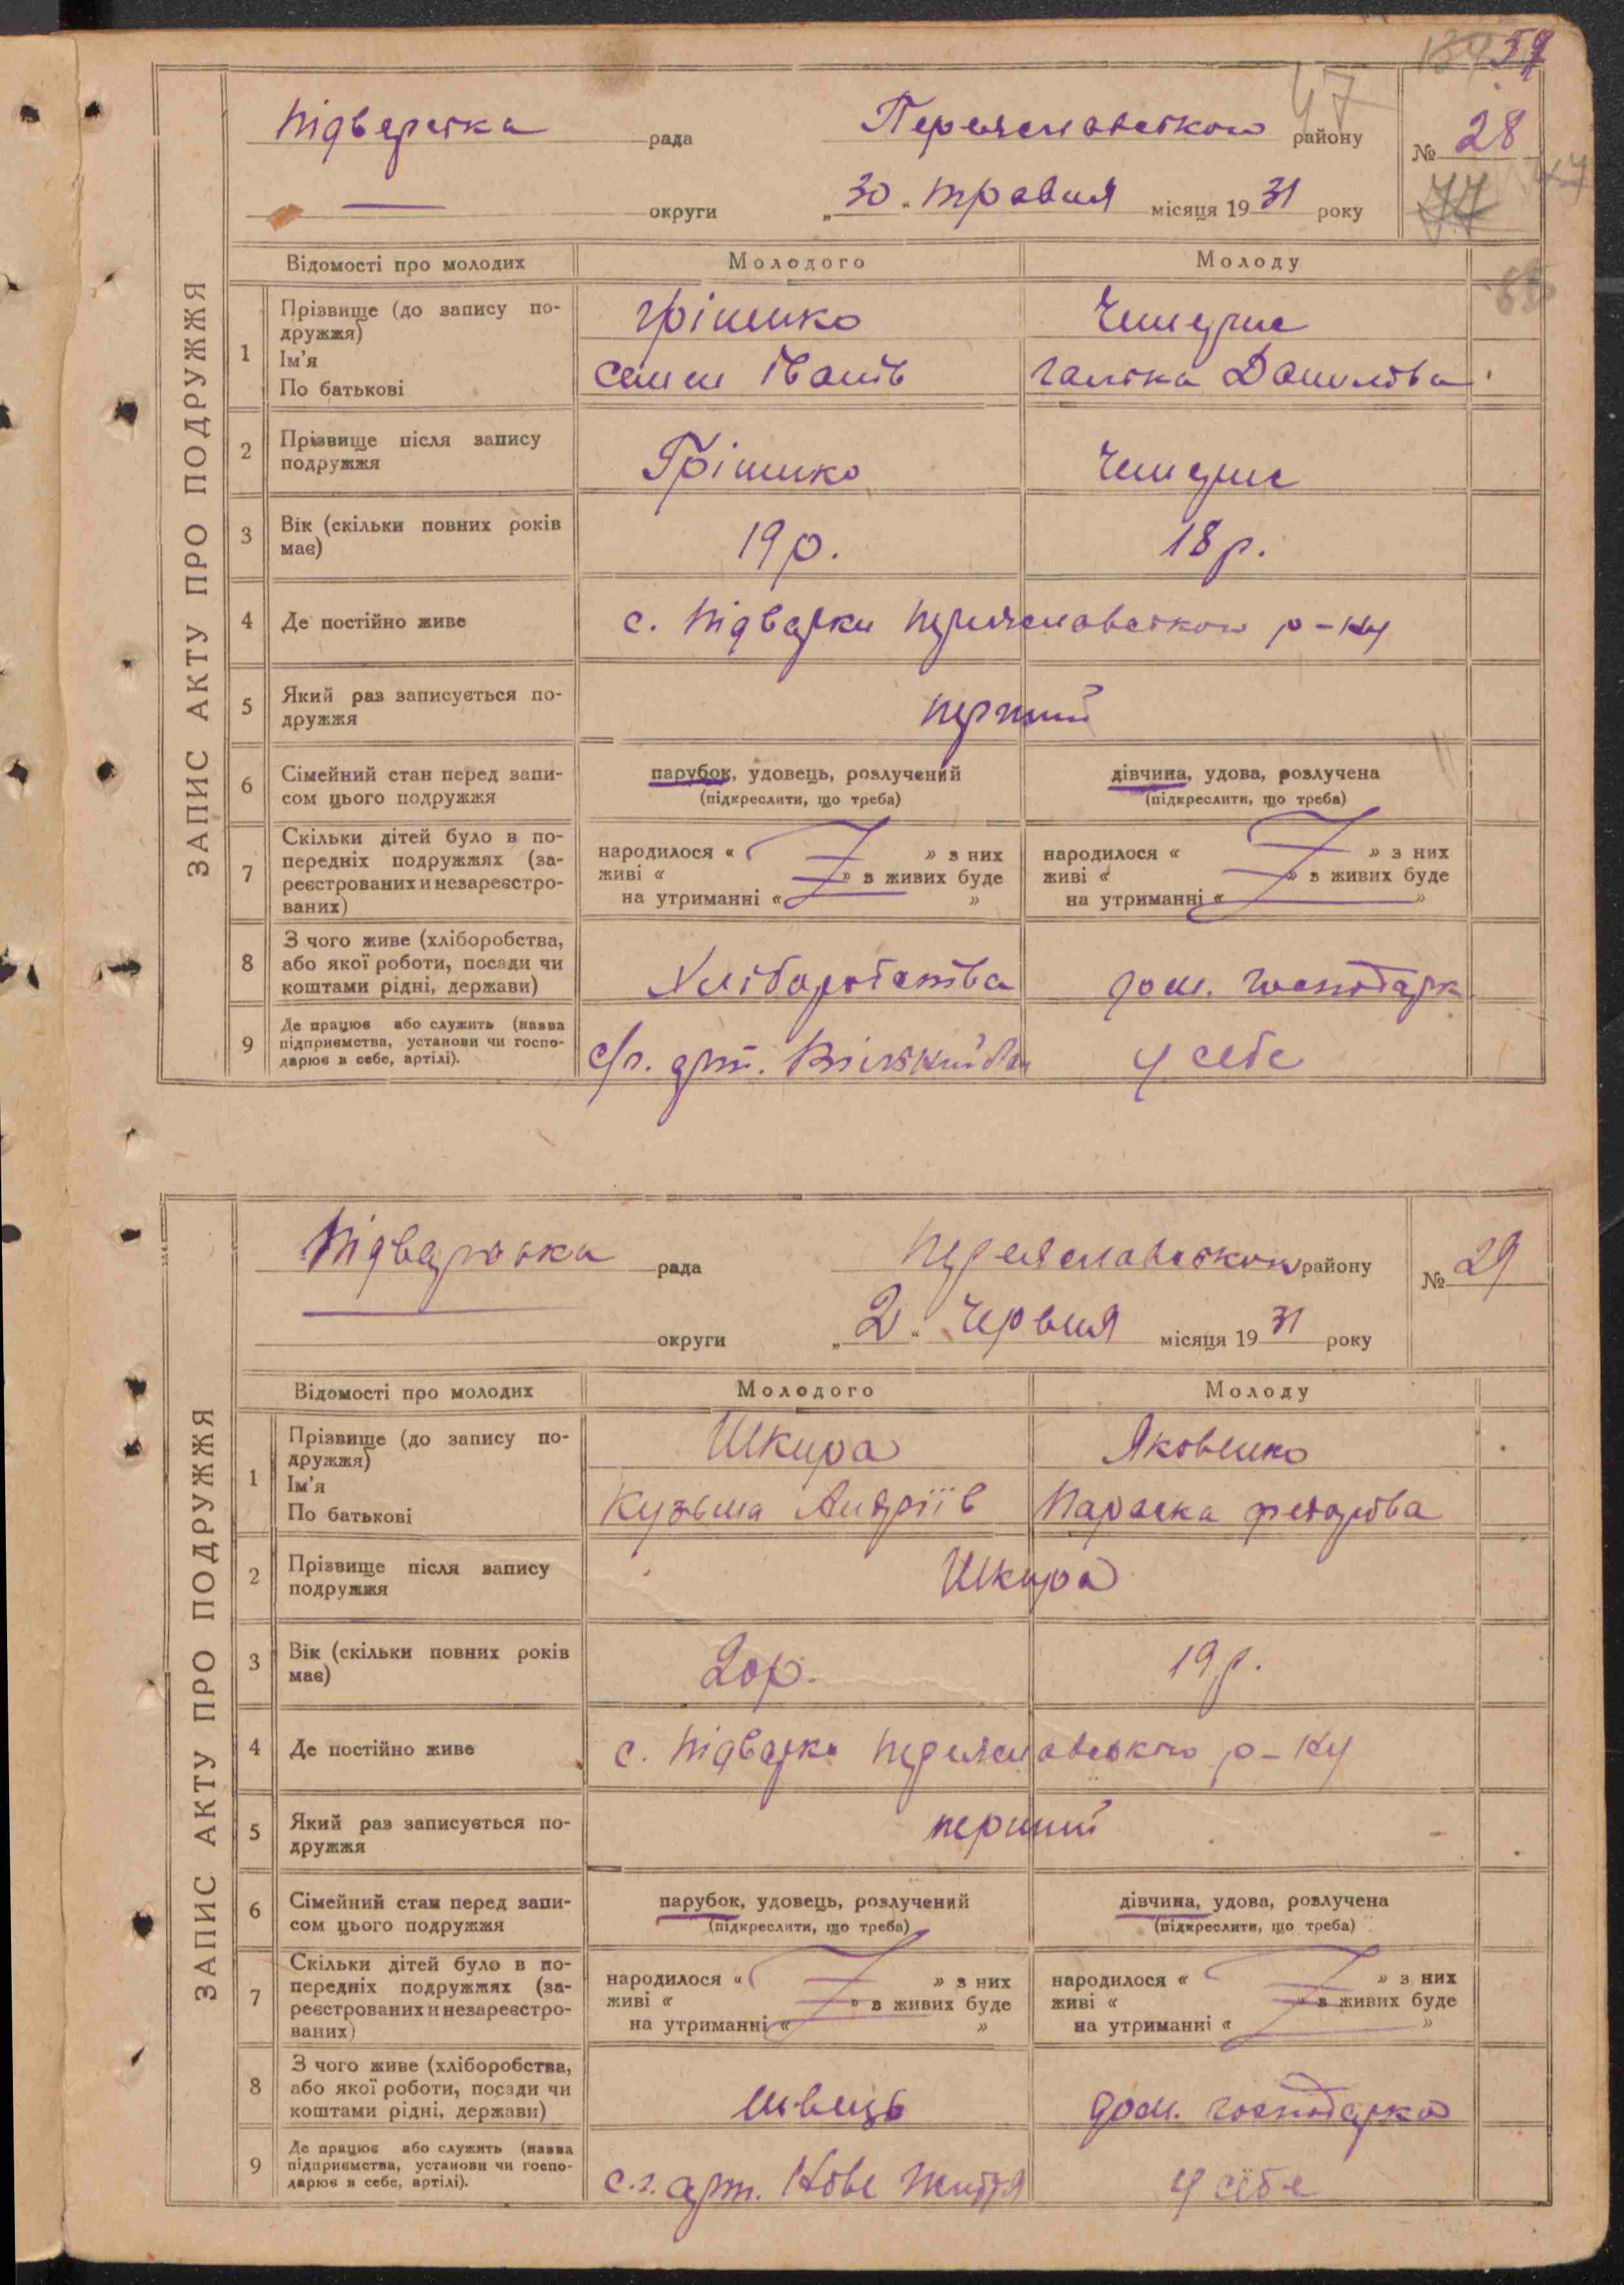 59
47
Підварська рада Переяславського району № 28
округи „30" травня місяця 1931 року
77
ЗАПИС АКТУ ПРО ПОДРУЖЖЯ
Відомості про молодих Молодого Молоду
1 Прізвище (до запису по-
дружжя)
Ім'я
По батькові
Грішко
Семен Іванів
Галька Данилова
2 Прізвище після запису
подружжя
Грішко
3 Вік (скільки повних років
має)
19 р. 18 р.
4 Де постійно живе
с. Підварки Переяславського р-ну
5 Який раз записується по-
дружжя
перший
6 Сімейний стан перед запи-
сом цього подружжя
парубок, удовець, розлучений
(підкреслити, що треба)
дівчина, удова, розлучена
(підкреслити, що треба)
7 Скільки дітей було в по-
передніх подружжях (за-
реєстрованих и незареєстро-
ваних)
народилося « » з них
живі « » в живих буде
на утриманні « »
народилося « » з них
живі « » в живих буде
на утриманні « »
8 З чого живе (хліборобства,
або якої роботи, посади чи
коштами рідні, держави)
Хліборобства
дом. господарк
9 Де працює або служить (назва
підприємства, установи чи госпо-
дарює в себе, артілі).
с/г. арт.
у себе
Підварська рада Переяславського району № 29
округи „2" червня місяця 1931 року
ЗАПИС АКТУ ПРО ПОДРУЖЖЯ
Відомості про молодих Молодого Молоду
1 Прізвище (до запису по-
дружжя)
Ім'я
По батькові
Шкира
Кузьма Андріїв
Яковенко
Параска Федорова
2 Прізвище після запису
подружжя
Шкира
3 Вік (скільки повних років
має)
20 р. 19 р.
4 Де постійно живе
с. Підварки Переяславського р-ну
5 Який раз записується по-
дружжя
перший
6 Сімейний стан перед запи-
сом цього подружжя
парубок, удовець, розлучений
(підкреслити, що треба)
дівчина, удова, розлучена
(підкреслити, що треба)
7 Скільки дітей було в по-
передніх подружжях (за-
реєстрованих и незареєстро-
ваних)
народилося « » з них
живі « » в живих буде
на утриманні « »
народилося « » з них
живі « » в живих буде
на утриманні « »
8 З чого живе (хліборобства,
або якої роботи, посади чи
коштами рідні, держави)
швець
дом. господарка
9 Де працює або служить (назва
підприємства, установи чи госпо-
дарює в себе, артілі).
с.г. арт. Нове Життя
у себе